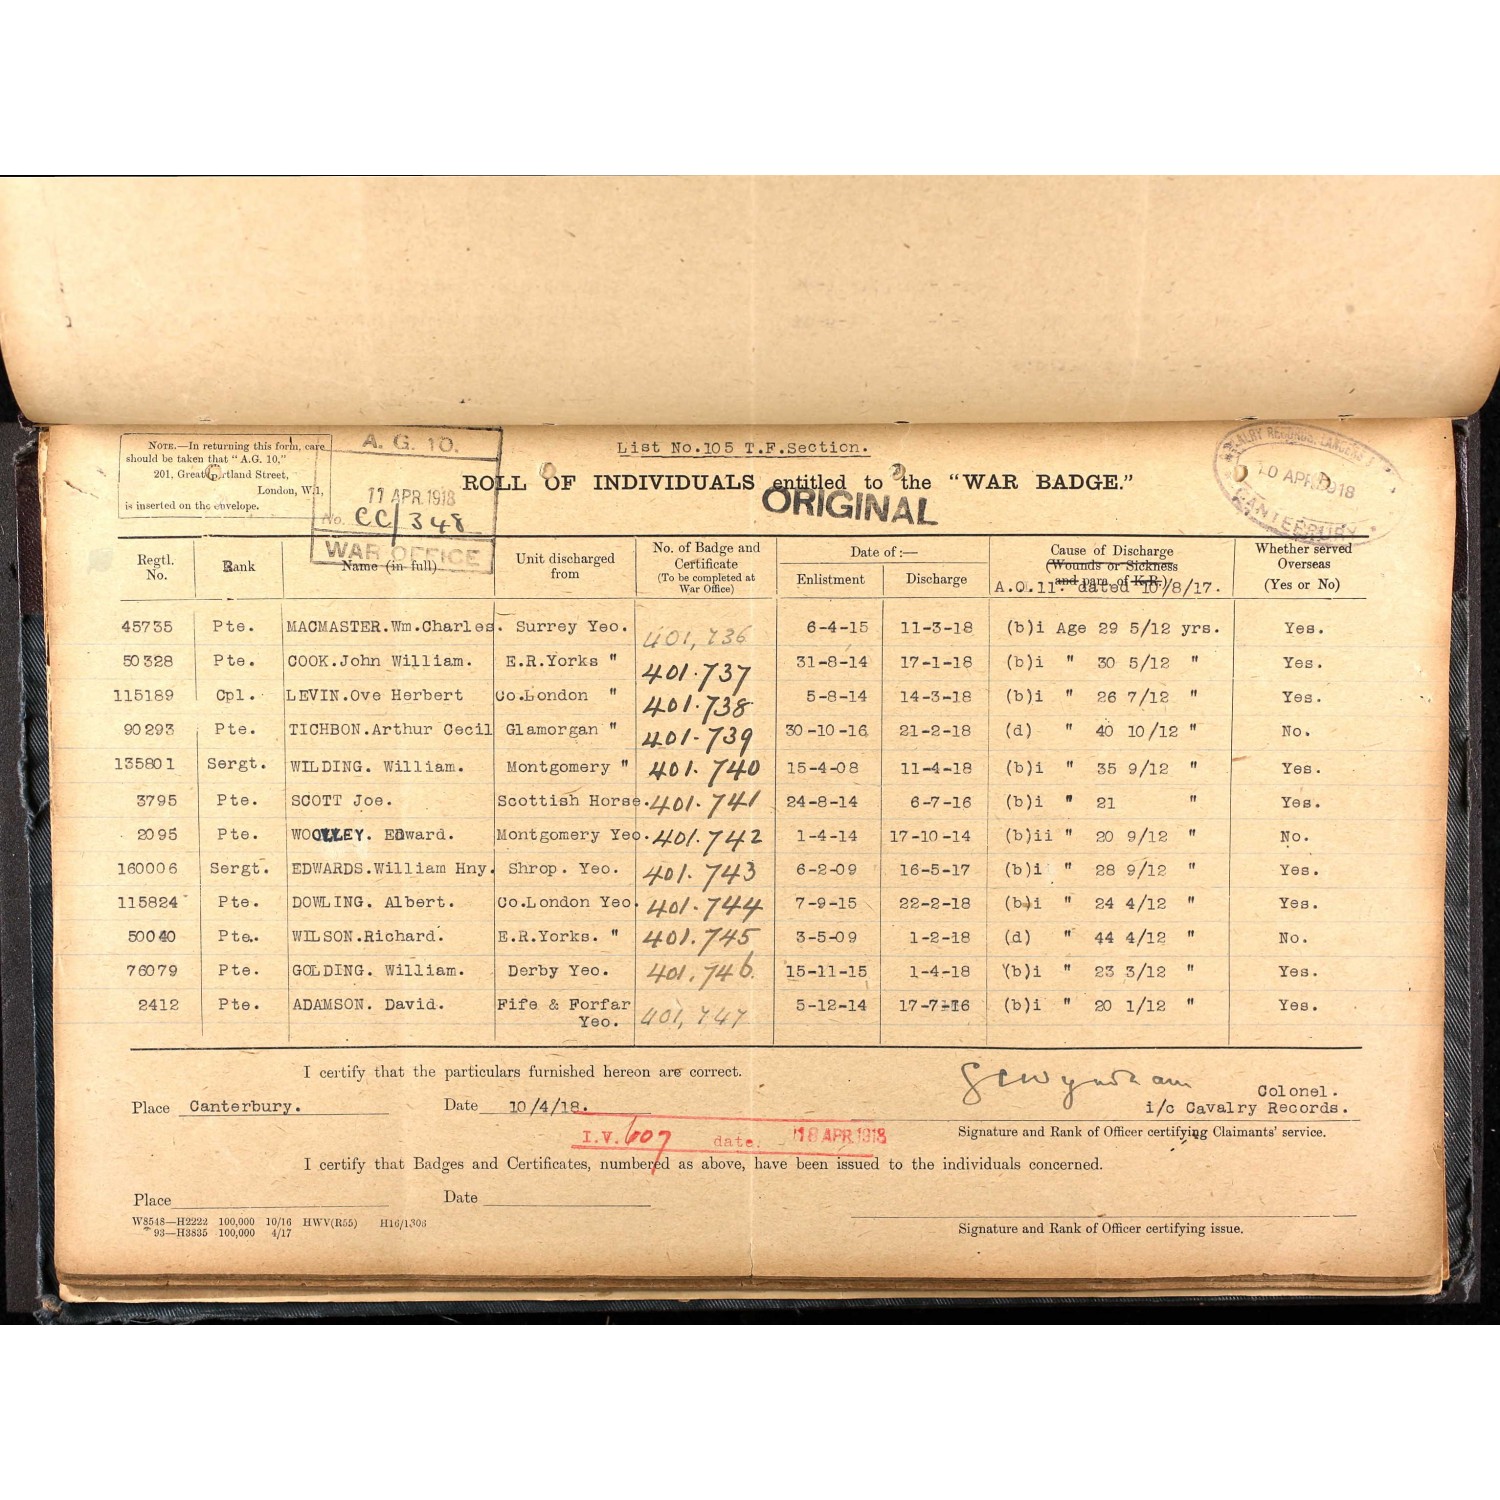 NOTE.—In returning this form, care
should be taken that "A.G. 10,"
201, Great Portland Street,
London, W.1,
is inserted on the envelope.
A. G. 10.
11 APR.1918
No. CC/348
WAR OFFICE
List No.105 T.F.Section.
ROLL OF INDIVIDUALS entitled to the "WAR BADGE."
ORIGINAL
CANTERBURY
10 APR 1918
Regtl. No. Rank Name (in full) Unit discharged from No. of Badge and Certificate (To be completed at War Office) Date of :— Enlistment Discharge Cause of Discharge (Wounds or Sickness and para. of K.R.) A.O.11. dated 10/8/17. Whether served Overseas (Yes or No)
45735 Pte. MACMASTER.Wm.Charles. Surrey Yeo. 401,736 6-4-15 11-3-18 (b)i Age 29 5/12 yrs. Yes.
50328 Pte. COOK.John William. E.R.Yorks " 401.737 31-8-14 17-1-18 (b)i " 30 5/12 " Yes.
115189 Cpl. LEVIN.Ove Herbert Co.London " 401.738 5-8-14 14-3-18 (b)i " 26 7/12 " Yes.
90293 Pte. TICHBON.Arthur Cecil Glamorgan " 401.739 30-10-16 21-2-18 (d) " 40 10/12 " No.
135801 Sergt. WILDING. William. Montgomery " 401.740 15-4-08 11-4-18 (b)i " 35 9/12 " Yes.
3795 Pte. SCOTT Joe. Scottish Horse. 401.741 24-8-14 6-7-16 (b)i " 21 " Yes.
2095 Pte. WOOLLEY. Edward. Montgomery Yeo. 401.742 1-4-14 17-10-14 (b)ii " 20 9/12 " No.
160006 Sergt. EDWARDS.William Hny. Shrop. Yeo. 401.743 6-2-09 16-5-17 (b)i " 28 9/12 " Yes.
115824 Pte. DOWLING. Albert. Co.London Yeo. 401.744 7-9-15 22-2-18 (b)i " 24 4/12 " Yes.
50040 Pte. WILSON.Richard. E.R.Yorks. " 401.745 3-5-09 1-2-18 (d) " 44 4/12 " No.
76079 Pte. GOLDING. William. Derby Yeo. 401.746 15-11-15 1-4-18 (b)i " 23 3/12 " Yes.
2412 Pte. ADAMSON. David. Fife & Forfar Yeo. 401,747 5-12-14 17-7-16 (b)i " 20 1/12 " Yes.
I certify that the particulars furnished hereon are correct.
Colonel.
Place Canterbury. Date 10/4/18. i/c Cavalry Records.
I.V. 607 date. 18 APR.1918
Signature and Rank of Officer certifying Claimants' service.
I certify that Badges and Certificates, numbered as above, have been issued to the individuals concerned.
Place Date
W8548—H2222 100,000 10/16 HWV(R55) H16/1306
93—H3835 100,000 4/17
Signature and Rank of Officer certifying issue.